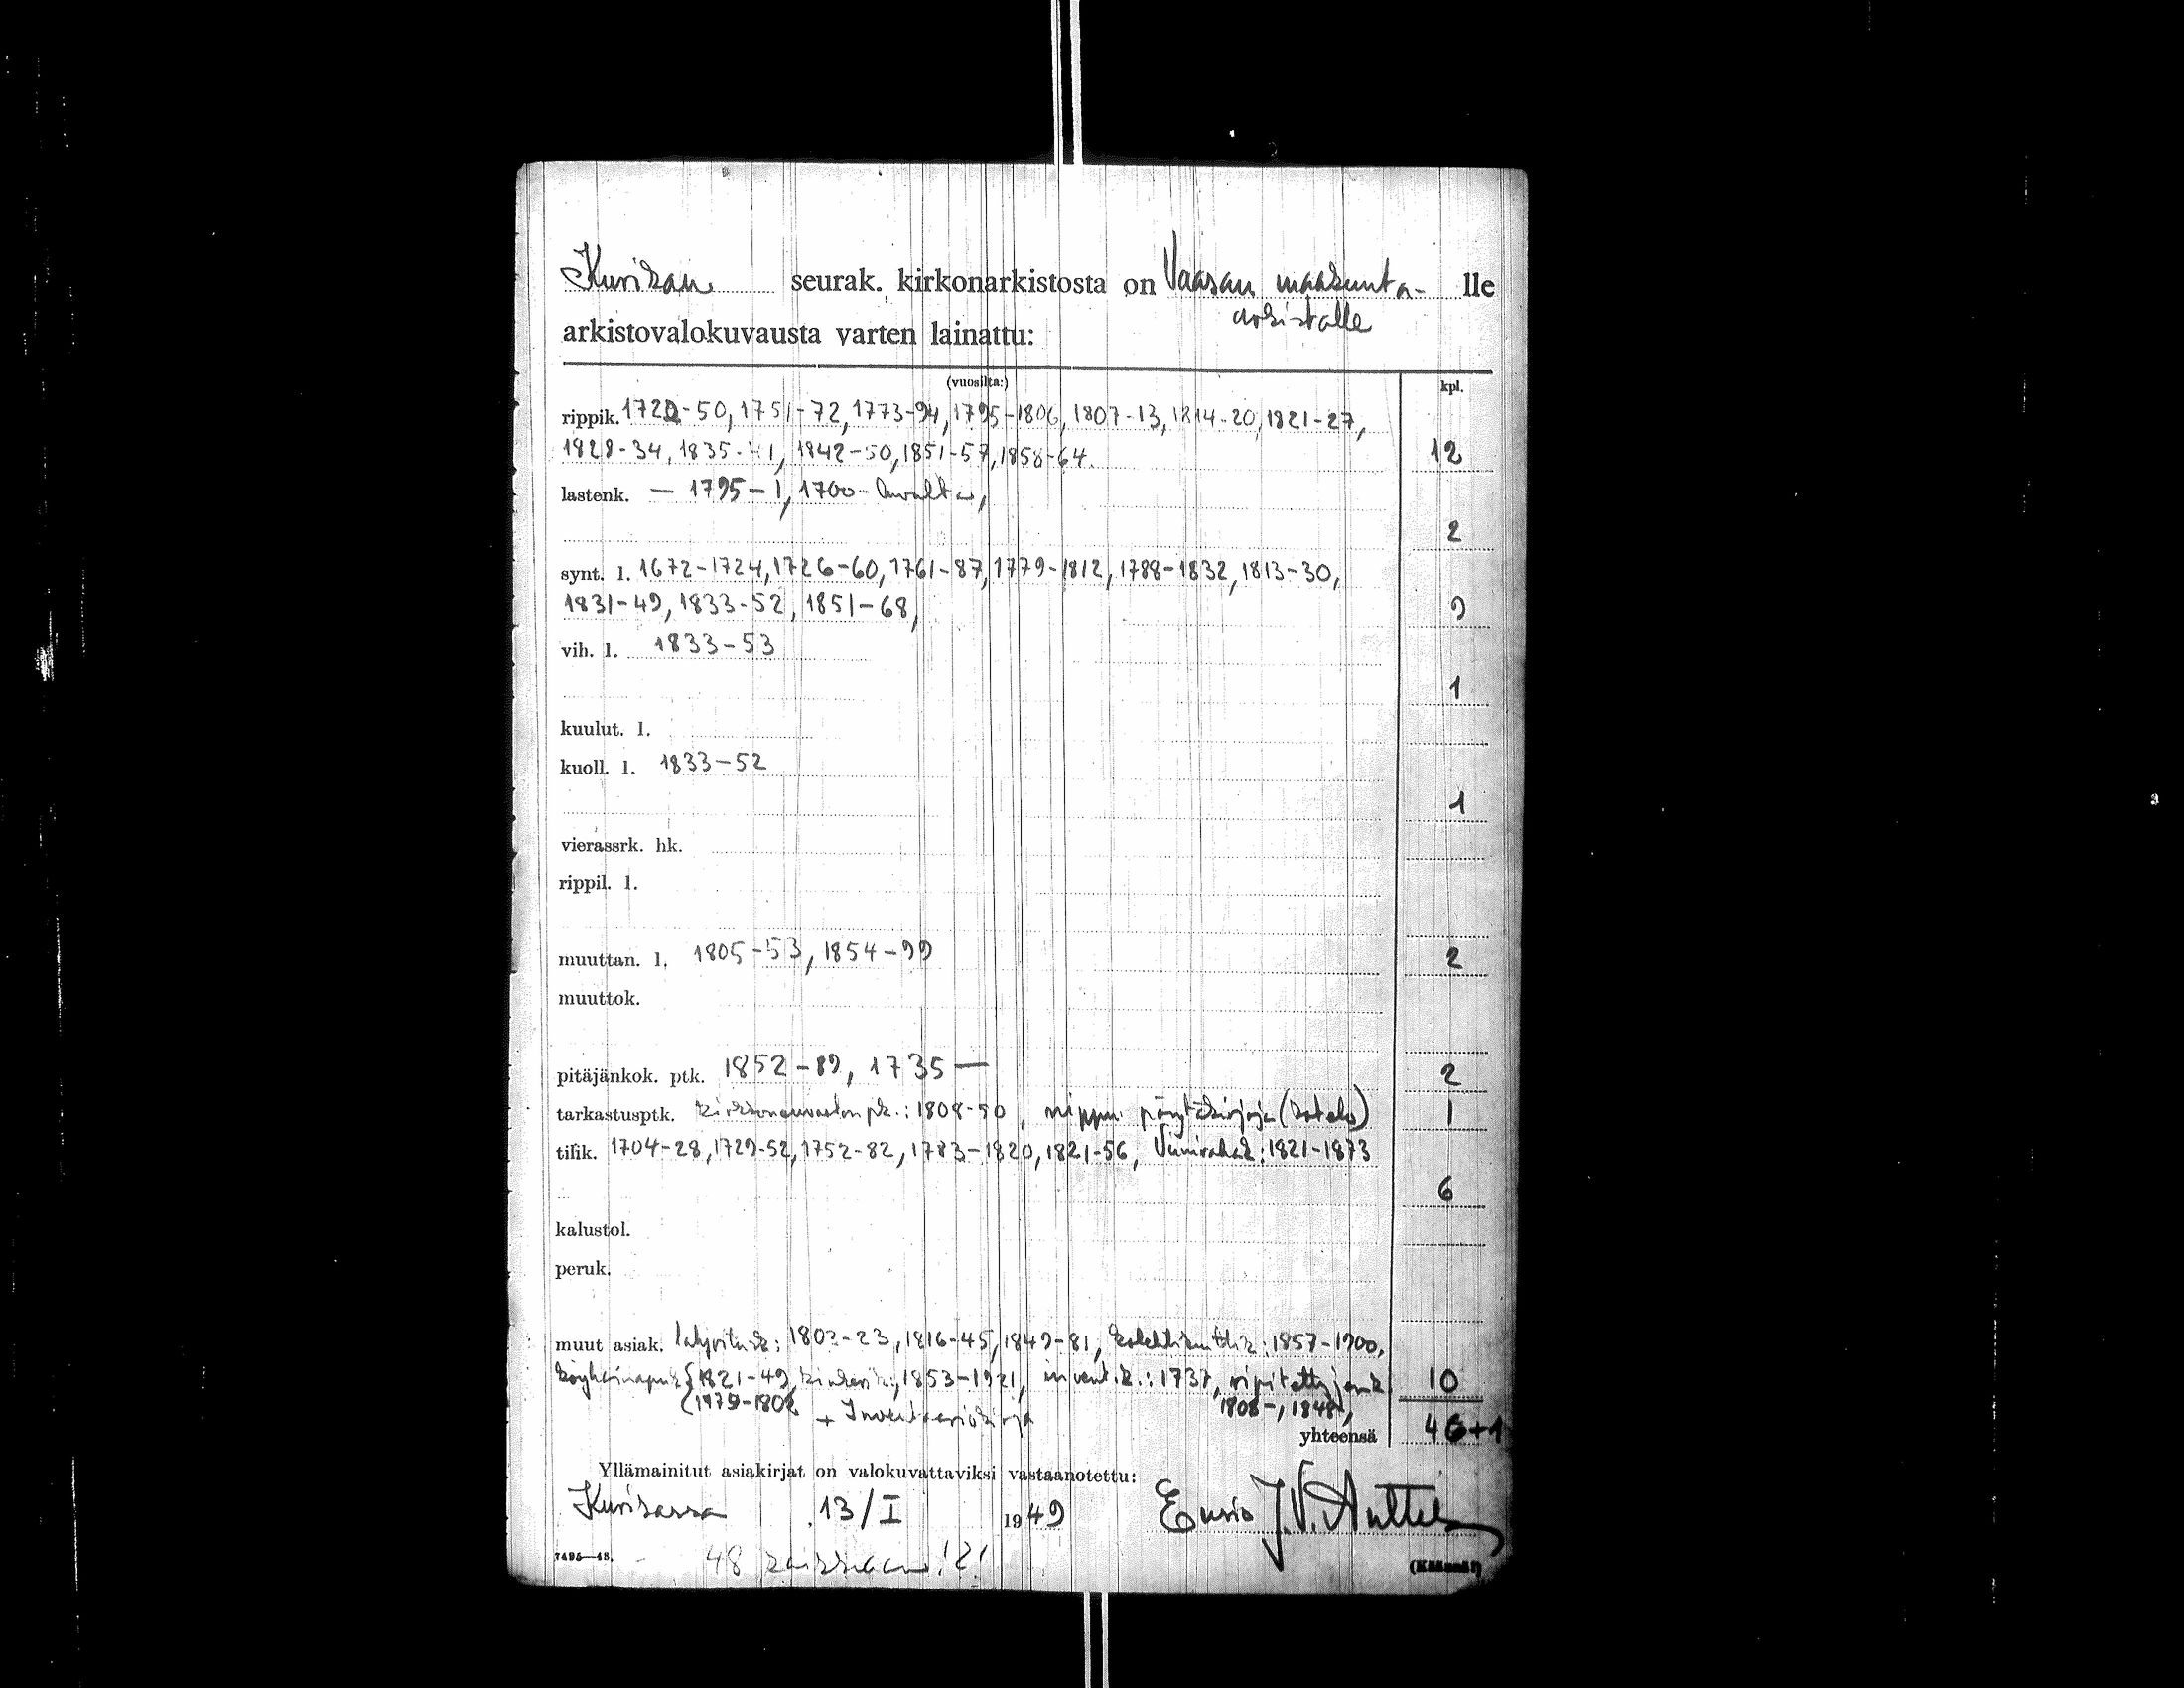 Kurikan seurak. kirkonarkistosta on Vaasan maakunta- lle
arkistolle
arkistovalokuvausta varten lainattu:
(vuosilta:) kpl.
rippik. 1720-50, 1751-72, 1773-94, 1795-1806, 1807-13, 1814-20, 1821-27,
1828-34, 1835-41, 1842-50, 1851-57, 1858-64. 12
lastenk. — 1795-1, 1700-luvulta,
2
synt. l. 1672-1724, 1726-60, 1761-87, 1779-1812, 1788-1832, 1813-30,
1831-49, 1833-52, 1851-68, 9
vih. l. 1833-53
1
kuulut. l.
kuoll. l. 1833-52
1
vierassrk. hk.
rippil. l.
muuttan. l. 1805-53, 1854-99 2
muuttok.
pitäjänkok. ptk. 1852-89, 1735— 2
tarkastusptk. kirkkoneuvoston pk.: 1808-50, nippu pöytäkirjoja (kotelo) 1
tilik. 1704-28, 1729-52, 1752-82, 1783-1820, 1821-56, Viinirahat: 1821-1873
6
kalustol.
peruk.
muut asiak. 1802-23, 1816-45, 1849-81, 1857-1900,
1821-49, 1853-1921, invent.k.: 1737, 10
+ Inventaariokirja 1808-, 1848-,
yhteensä 46+1
Yllämainitut asiakirjat on valokuvattaviksi vastaanotettu:
Kurikassa 13/I 1949 J.V. Anttila
7495—48. 48 kaikkiaan!2! (Käännä!)